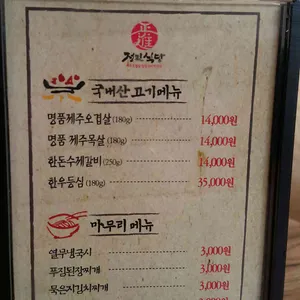 정진식당
국내산 고기메뉴
명품제주오겹살(180g) 14,000원
명품 제주목살(180g) 14,000원
한돈수제갈비(250g) 14,000원
한우등심(180g) 35,000원
마무리 메뉴
열무냉국시 3,000원
푸짐된장찌개 3,000원
묵은지김치찌개 3,000원